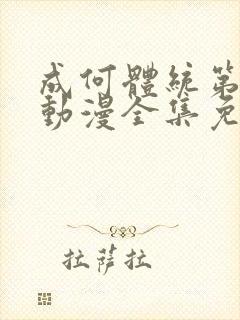 成何體統第
動漫全集免
拉薩拉